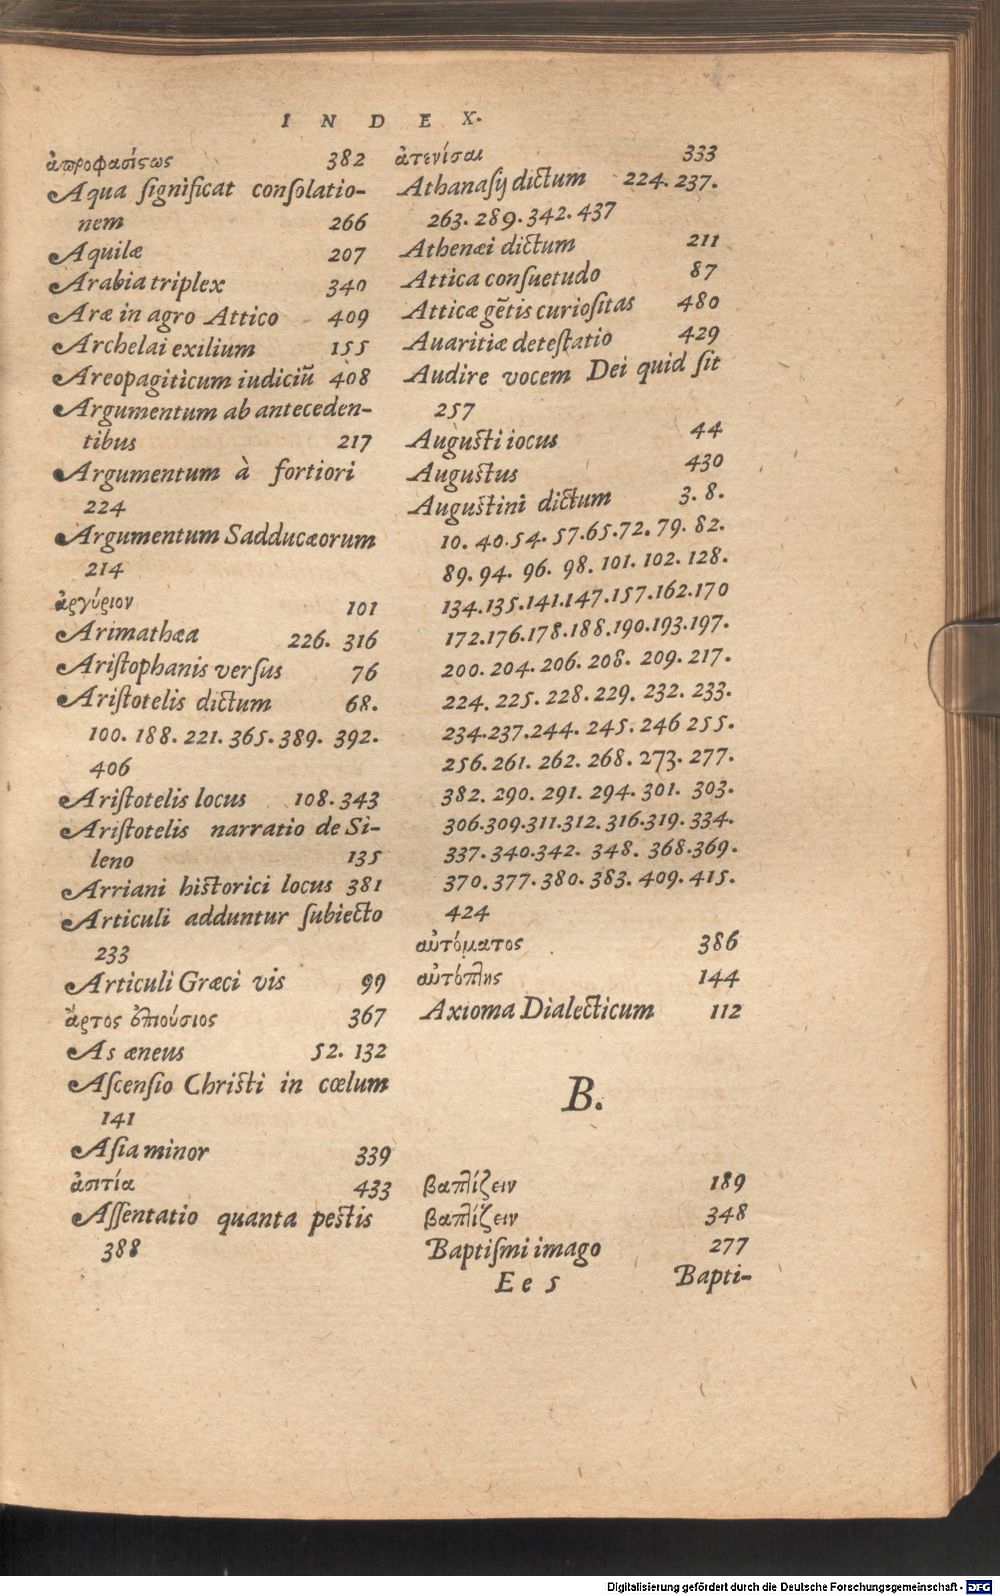 INDEX.
ἀπροφασίστως 382
Aqua ſignificat conſolatio-
nem 266
Aquilæ 207
Arabia triplex 340
Aræ in agro Attico 409
Archelai exilium 155
Areopagiticum iudiciū 408
Argumentum ab anteceden-
tibus 217
Argumentum à fortiori
224
Argumentum Sadducæorum
214
ἀργύριον 101
Arimathæa 226. 316
Ariſtophanis verſus 76
Ariſtotelis dictum 68.
100. 188. 221. 365. 389. 392.
406
Ariſtotelis locus 108. 343
Ariſtotelis narratio de Si-
leno 135
Arriani hiſtorici locus 381
Articuli adduntur ſubiecto
233
Articuli Græci vis 99
ἄρτος ἐπιούσιος 367
As æneus 52. 132
Aſcenſio Chriſti in cœlum
141
Aſia minor 339
ἀσιτία 433
Aſſentatio quanta peſtis
388
ἀτενίσαι 333
Athanaſij dictum 224. 237.
263. 289. 342. 437
Athenæi dictum 211
Attica conſuetudo 87
Atticæ gētis curioſitas 480
Auaritiæ deteſtatio 429
Audire vocem Dei quid ſit
257
Auguſti iocus 44
Auguſtus 430
Auguſtini dictum 3. 8.
10. 40. 54. 57. 65. 72. 79. 82.
89. 94. 96. 98. 101. 102. 128.
134. 135. 141. 147. 157. 162. 170
172. 176. 178. 188. 190. 193. 197.
200. 204. 206. 208. 209. 217.
224. 225. 228. 229. 232. 233.
234. 237. 244. 245. 246 255.
256. 261. 262. 268. 273. 277.
382. 290. 291. 294. 301. 303.
306. 309. 311. 312. 316. 319. 334.
337. 340. 342. 348. 368. 369.
370. 377. 380. 383. 409. 415.
424
αὐτόματος 386
αὐτόπτης 144
Axioma Dialecticum 112
B.
βαπτίζειν 189
βαπτίζειν 348
Baptiſmi imago 277
Ee 5 Bapti-
Digitalisierung gefördert durch die Deutsche Forschungsgemeinschaft - DFG